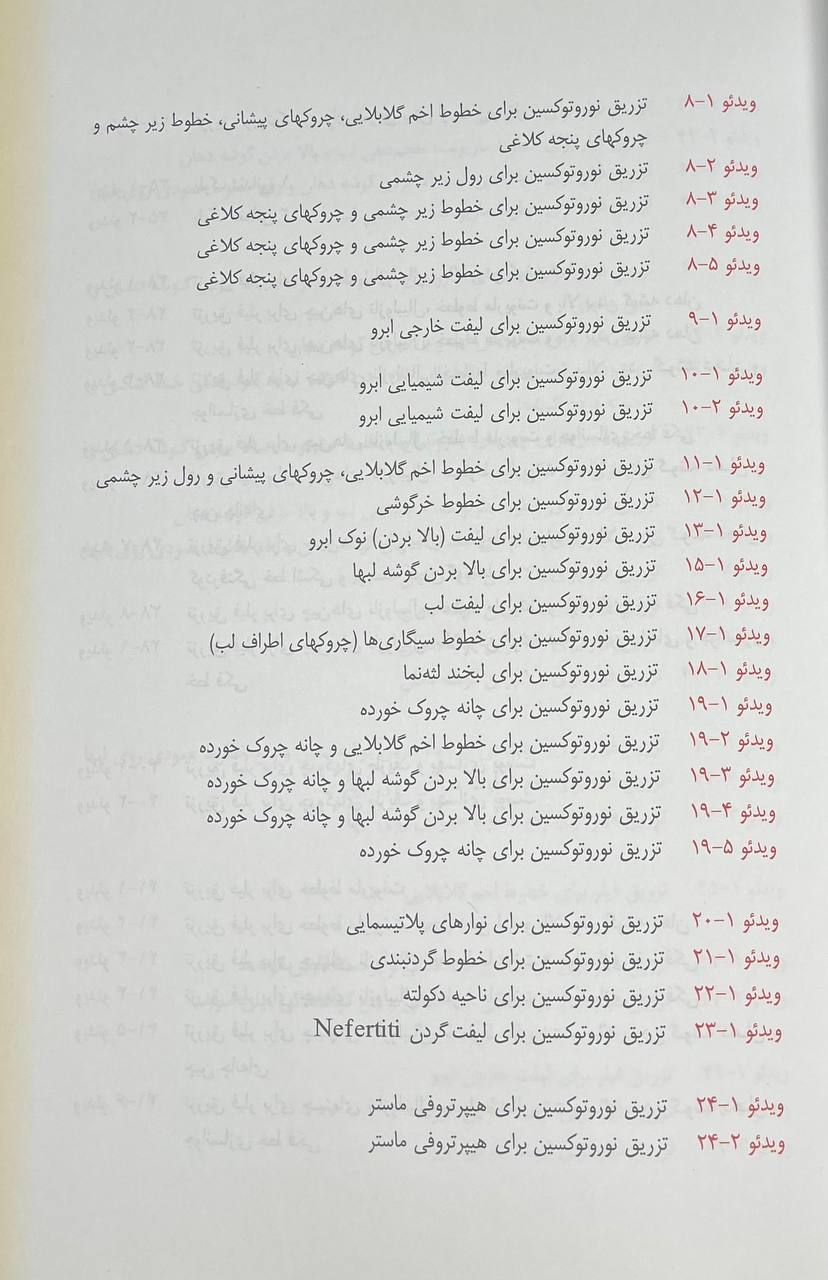 ویدئو ۱-۸ تزریق نوروتوکسین برای خطوط اخم گلابلایی، چروکهای پیشانی، خطوط زیر چشم و
چروکهای پنجه کلاغی
ویدئو ۲-۸ تزریق نوروتوکسین برای رول زیر چشمی
ویدئو ۳-۸ تزریق نوروتوکسین برای خطوط زیر چشمی و چروکهای پنجه کلاغی
ویدئو ۴-۸ تزریق نوروتوکسین برای خطوط زیر چشمی و چروکهای پنجه کلاغی
ویدئو ۵-۸ تزریق نوروتوکسین برای خطوط زیر چشمی و چروکهای پنجه کلاغی
ویدئو ۱-۹ تزریق نوروتوکسین برای لیفت خارجی ابرو
ویدئو ۱-۱۰ تزریق نوروتوکسین برای لیفت شیمیایی ابرو
ویدئو ۲-۱۰ تزریق نوروتوکسین برای لیفت شیمیایی ابرو
ویدئو ۱-۱۱ تزریق نوروتوکسین برای خطوط اخم گلابلایی، چروکهای پیشانی و رول زیر چشمی
ویدئو ۱-۱۲ تزریق نوروتوکسین برای خطوط خرگوشی
ویدئو ۱-۱۳ تزریق نوروتوکسین برای لیفت (بالا بردن) نوک ابرو
ویدئو ۱-۱۵ تزریق نوروتوکسین برای بالا بردن گوشه لبها
ویدئو ۱-۱۶ تزریق نوروتوکسین برای لیفت لب
ویدئو ۱-۱۷ تزریق نوروتوکسین برای خطوط سیگاری‌ها (چروکهای اطراف لب)
ویدئو ۱-۱۸ تزریق نوروتوکسین برای لبخند لثه‌نما
ویدئو ۱-۱۹ تزریق نوروتوکسین برای چانه چروک خورده
ویدئو ۲-۱۹ تزریق نوروتوکسین برای خطوط اخم گلابلایی و چانه چروک خورده
ویدئو ۳-۱۹ تزریق نوروتوکسین برای بالا بردن گوشه لبها و چانه چروک خورده
ویدئو ۴-۱۹ تزریق نوروتوکسین برای بالا بردن گوشه لبها و چانه چروک خورده
ویدئو ۵-۱۹ تزریق نوروتوکسین برای چانه چروک خورده
ویدئو ۱-۲۰ تزریق نوروتوکسین برای نوارهای پلاتیسمایی
ویدئو ۱-۲۱ تزریق نوروتوکسین برای خطوط گردنبندی
ویدئو ۱-۲۲ تزریق نوروتوکسین برای ناحیه دکولته
ویدئو ۱-۲۳ تزریق نوروتوکسین برای لیفت گردن Nefertiti
ویدئو ۱-۲۴ تزریق نوروتوکسین برای هیپرتروفی ماستر
ویدئو ۲-۲۴ تزریق نوروتوکسین برای هیپرتروفی ماستر